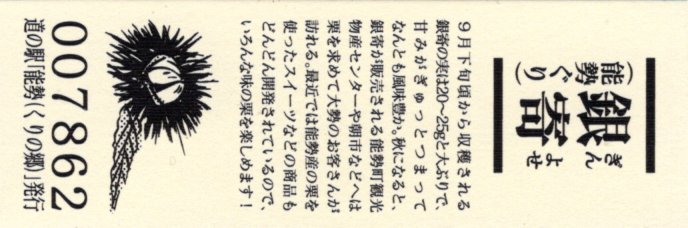 銀寄
ぎんよせ
(能勢ぐり)
９月下旬頃から収穫される
銀寄の実は20〜25gと大ぶりで、
甘みがぎゅっとつまって
なんとも風味豊か。秋になると、
銀寄が販売される能勢町観光
物産センターや朝市などへは
栗を求めて大勢のお客さんが
訪れる。最近では能勢産の栗を
使ったスイーツなどの商品も
どんどん開発されているので、
いろんな味の栗を楽しめます!
007862
道の駅「能勢(くりの郷)」発行